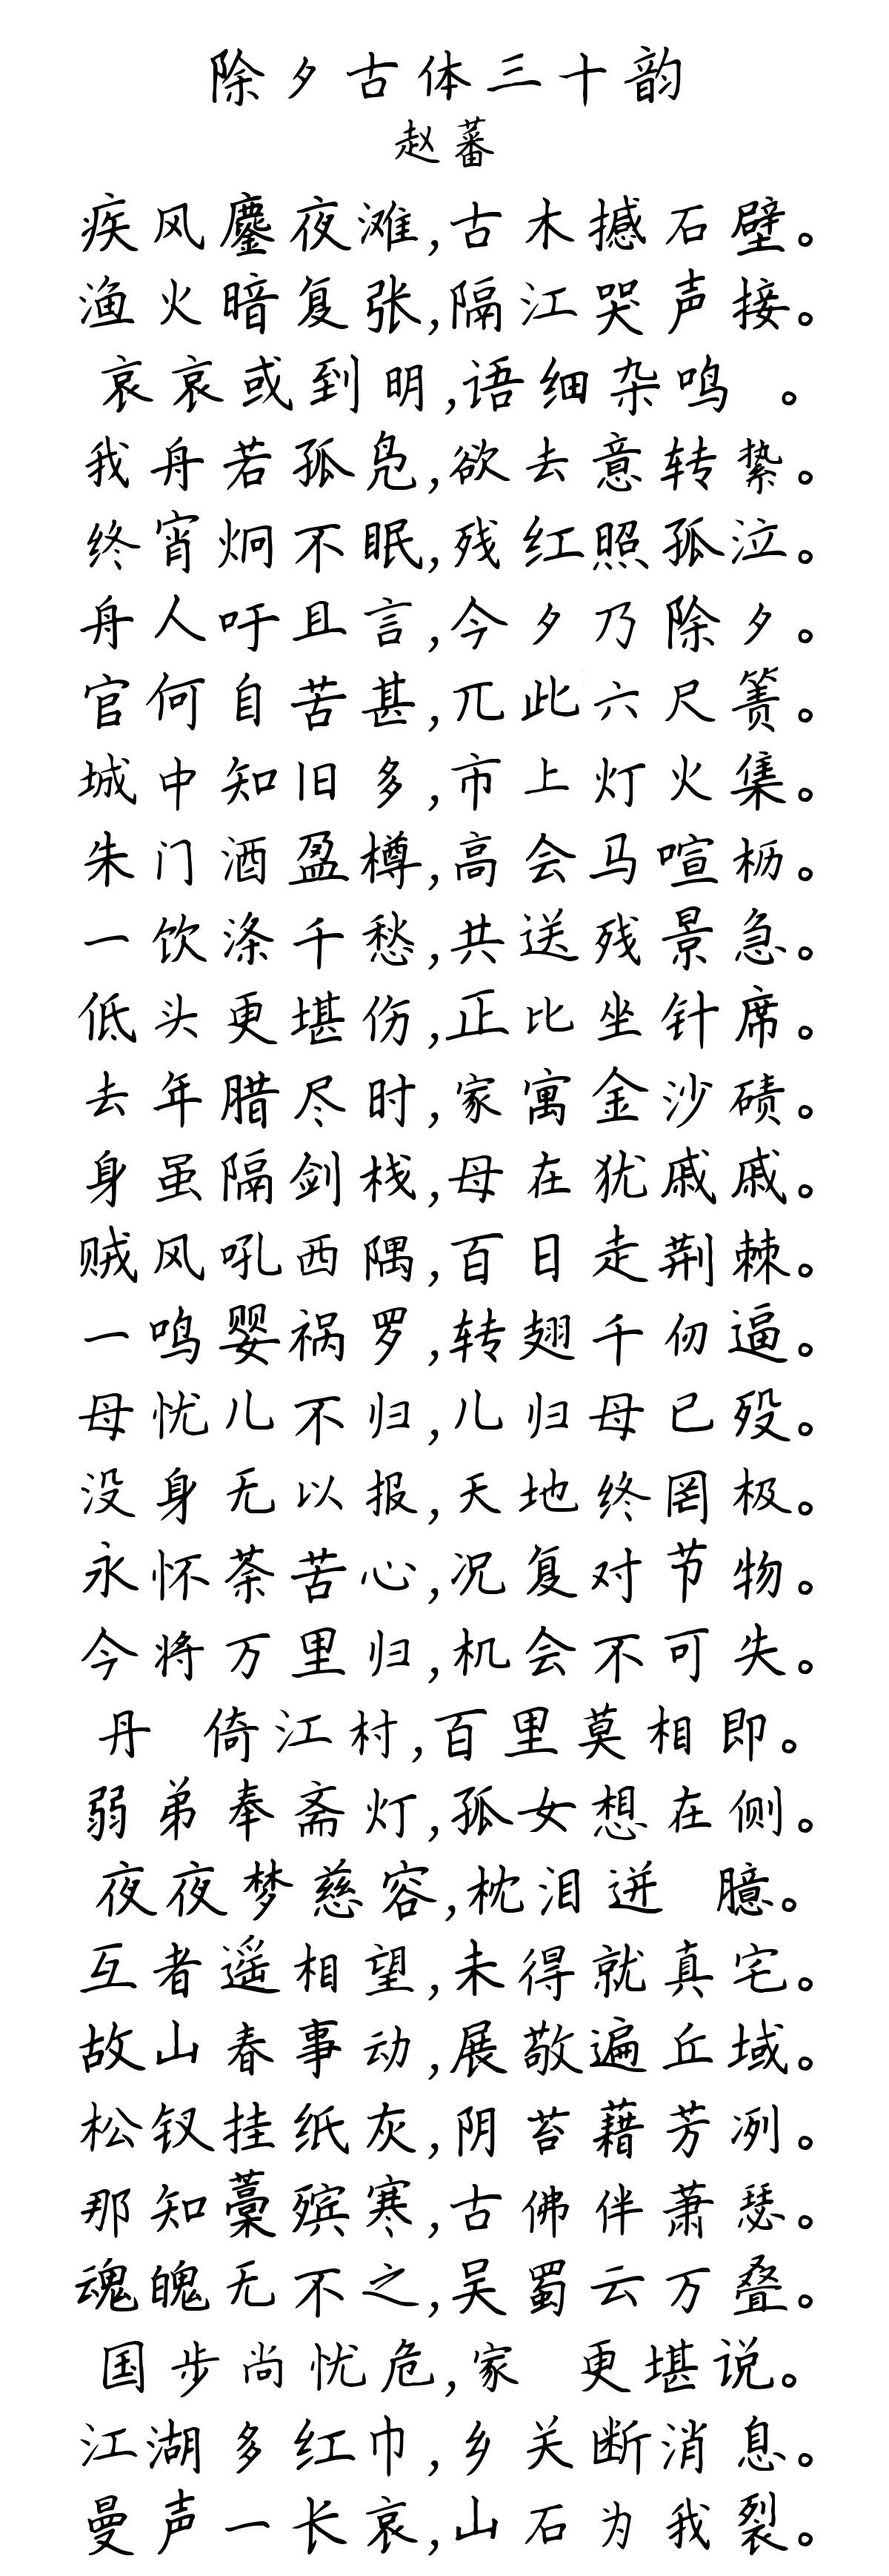 除夕古体三十韵
赵蕃
疾风鏖夜滩,古木撼石壁。
渔火暗复张,隔江哭声接。
哀哀或到明,语细杂鸣 。
我舟若孤凫,欲去意转絷。
终宵炯不眠,残红照孤泣。
舟人吁且言,今夕乃除夕。
官何自苦甚,兀此六尺箦。
城中知旧多,市上灯火集。
朱门酒盈樽,高会马喧枥。
一饮涤千愁,共送残景急。
低头更堪伤,正比坐针席。
去年腊尽时,家寓金沙碛。
身虽隔剑栈,母在犹戚戚。
贼风吼西隅,百日走荆棘。
一鸣婴祸罗,转翅千仞逼。
母忧儿不归,儿归母已殁。
没身无以报,天地终罔极。
永怀荼苦心,况复对节物。
今将万里归,机会不可失。
丹 倚江村,百里莫相即。
弱弟奉斋灯,孤女想在侧。
夜夜梦慈容,枕泪迸 臆。
互者遥相望,未得就真宅。
故山春事动,展敬遍丘域。
松钗挂纸灰,阴苔藉芳冽。
那知藁殡寒,古佛伴萧瑟。
魂魄无不之,吴蜀云万叠。
国步尚忧危,家 更堪说。
江湖多红巾,乡关断消息。
曼声一长哀,山石为我裂。